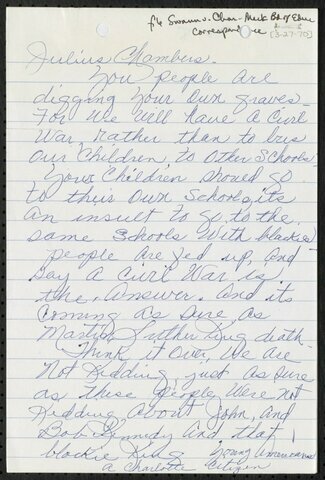 f/o Swann v. Char-Meck Bd of Educ
Correspondence
[3-27-70]
Julius Chambers.
You people are
digging your own graves.
For we will have a Civil
War, rather than to bus
our Children, to Other Schools.
Your Children should go
to their Own Schools, its
An insult to go to the
same Schools with blackies
people are fed up, and
say a Civil War is
the Answer. And its
Coming as sure, as
Martin Luther King death
Think it Over, We are
Not Kidding, just as sure
as these people were not
Kidding About John, and
Bob Kennedy And that
blackie King
Young Americans
a Charlotte Citizen